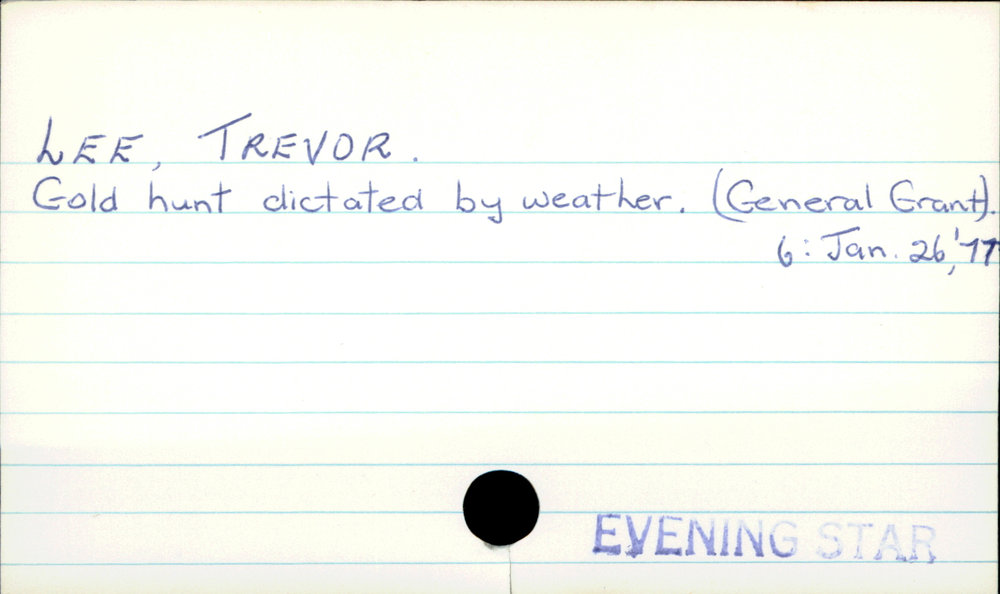 LEE, TREVOR.
Gold hunt dictated by weather. (General Grant).
6: Jan. 26, '77
EVENING STAR